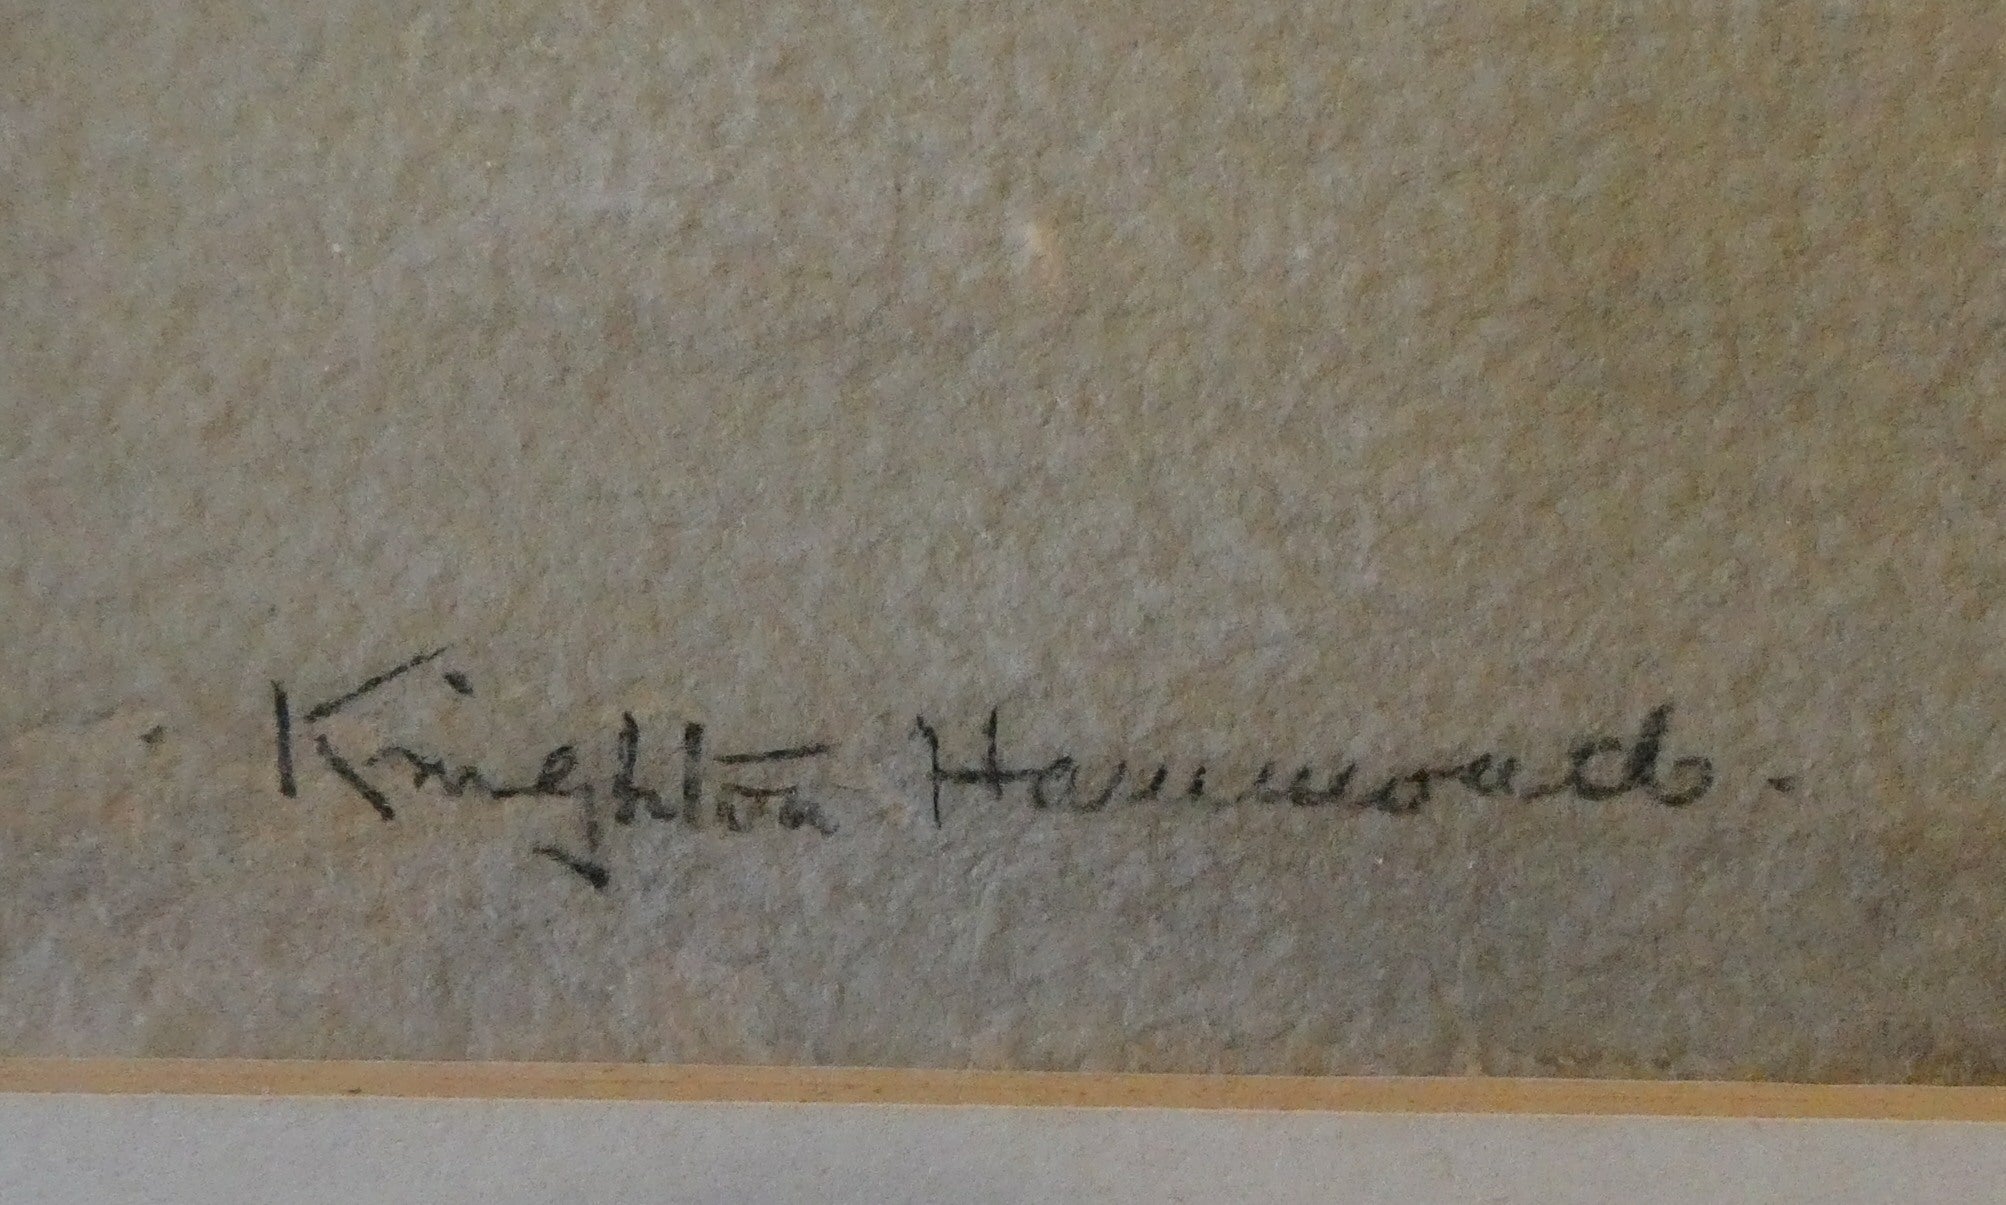 Knighton Hammond.